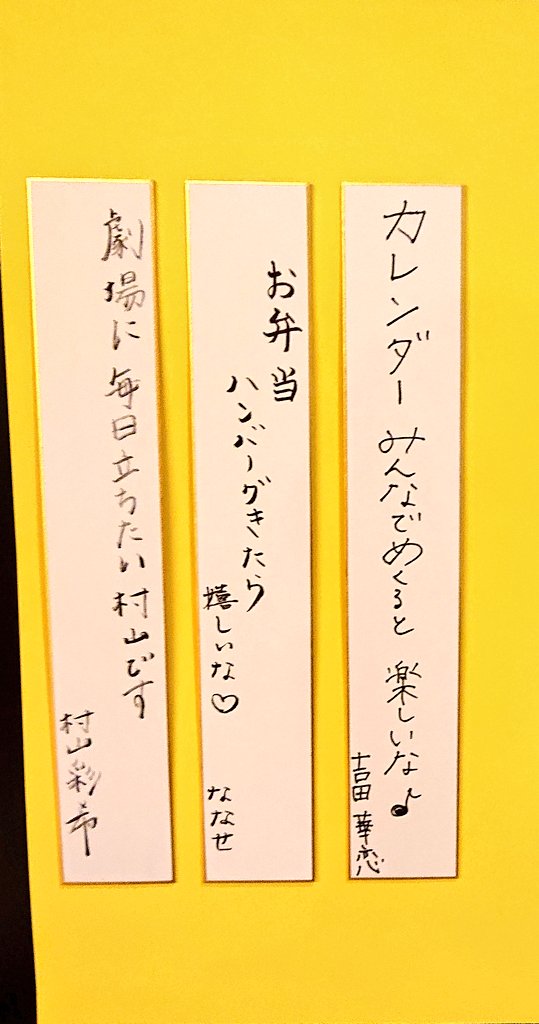 カレンダー みんなでめくると 楽しいな♪
吉田 華恋
お弁当
ハンバーグきたら
嬉しいな♡
ななせ
劇場に 毎日立ちたい 村山です
村山彩希